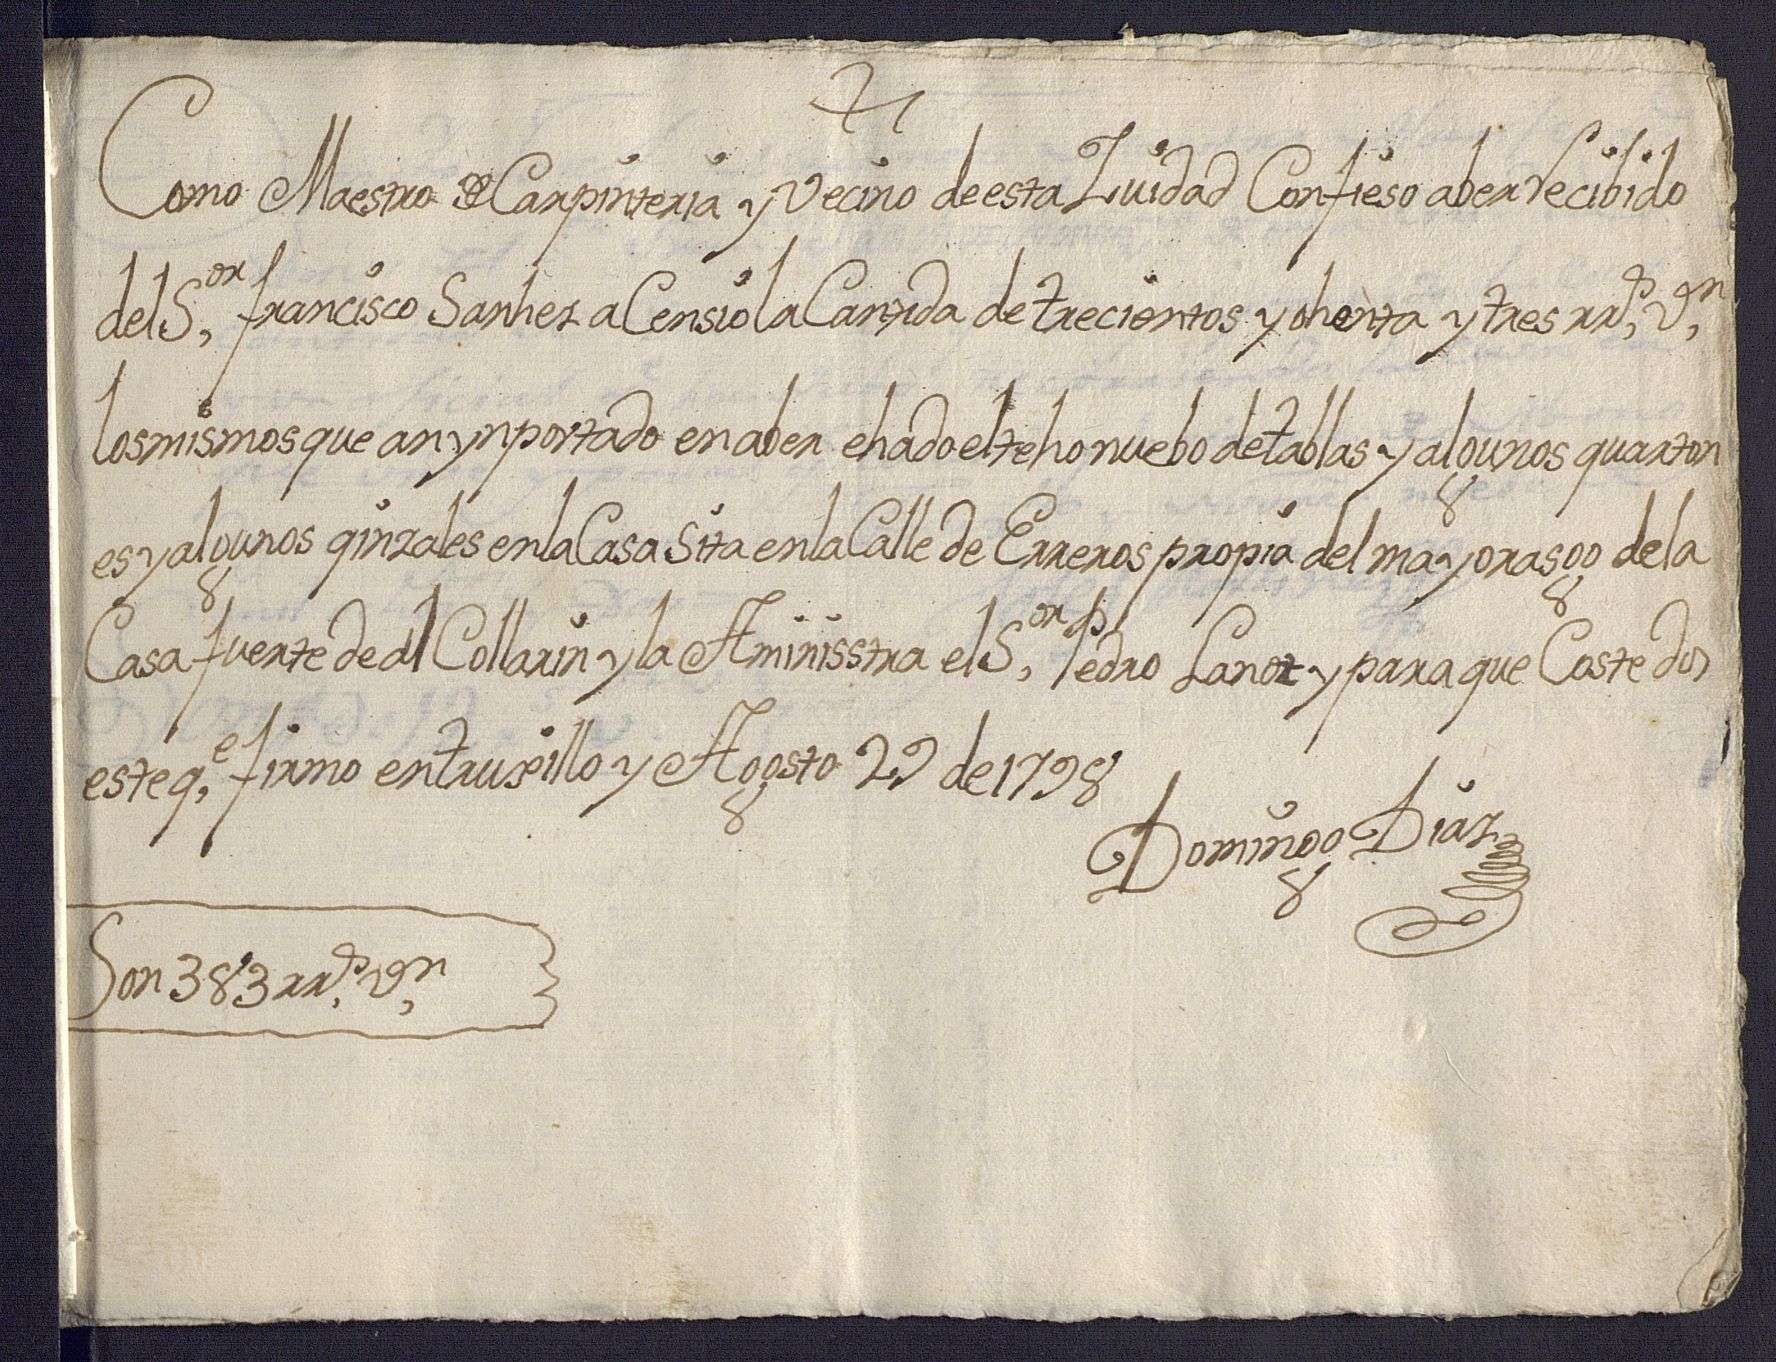 Como Maestro de Carpinteria y Vecino de esta Zuidad Confieso aber recibido
del S.or francisco Sanhez aCensio la Cantida de trecientos y ohenta y tres rr.s v.n
los mismos que an ynportado en aber ehado el teho nuebo de tablas y algunos quarton
es y algunos qinzales en la Casa Sita en la Calle de Erreros propia del mayorasgo de la
Casa fuerte de al Collarin y la Aministra el S.or Pedro Lanot y para que Coste doy
este q.e firmo en truxillo y Agosto 29 de 1798
Domingo Diaz
Son 383 rr.s v.n